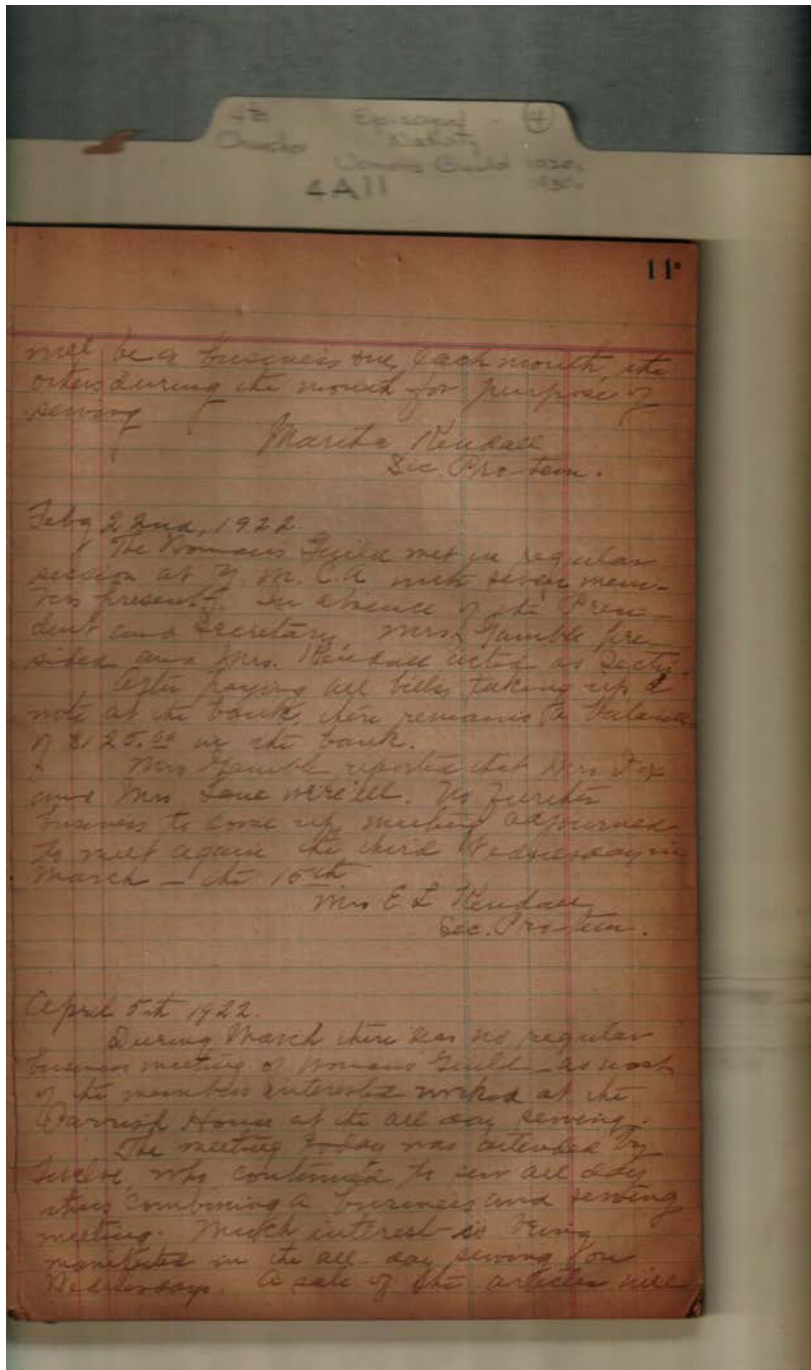 Episcopal
4
Church
Nativity
Womens Guild 1920s
4A11
1930s
11
will be a business one, each month, the
others during the month for purpose of
sewing
Martha Kendall
Sec. Pro-tem.
Feby 22nd, 1922.
The Womans Guild met in regular
session at Y. M. C. A with seven mem-
bers present. In absence of the Presi-
dent and Secretary, Mrs. Gamble pre-
sided and Mrs. Kendall acted as Secty.
After paying all bills, taking up a
note at the bank, there remains a balance
of $125.00 in the bank.
Mrs Gamble reported that Mrs Fox
and Mrs. Lane were ill. No further
business to come up, meeting adjourned
to meet again the third Wednesday in
March - the 15th
Mrs E L Kendall
Sec. Pro-tem.
April 5th 1922.
During March there was no regular
business meeting of Womans Guild - as most
of the members interested worked at the
Parrish House at the all day sewing.
The meeting today was attended by
twelve, who continued to sew all day
thus combining a business and sewing
meeting. Much interest is being
manifested in the all-day sewing on
Wednesdays. A sale of the articles will